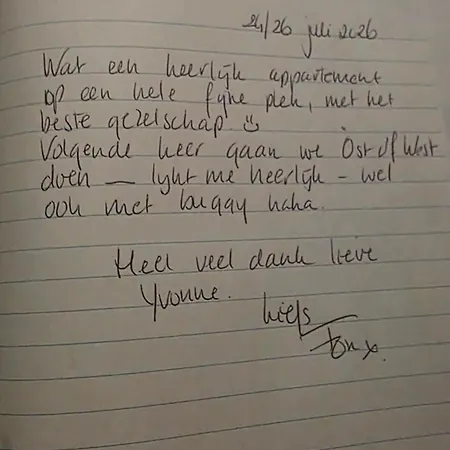 24/26 juli 2026
Wat een heerlijk appartement
op een hele fijne plek, met het
beste gezelschap.
Volgende keer gaan we Öst of West
doen — lijkt me heerlijk - wel
ook met buggy haha.
Heel veel dank lieve
Yvonne.
liefs
x.